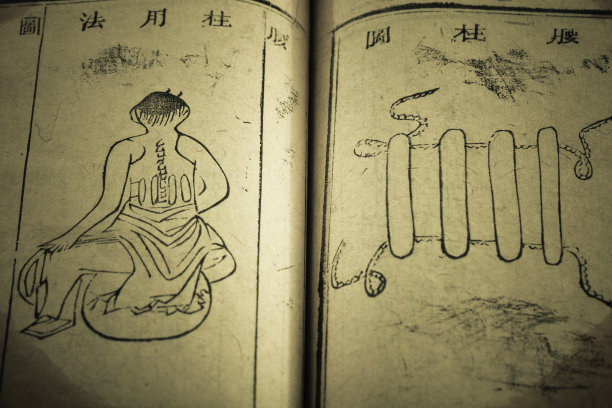 腰柱圖
腰柱用法圖